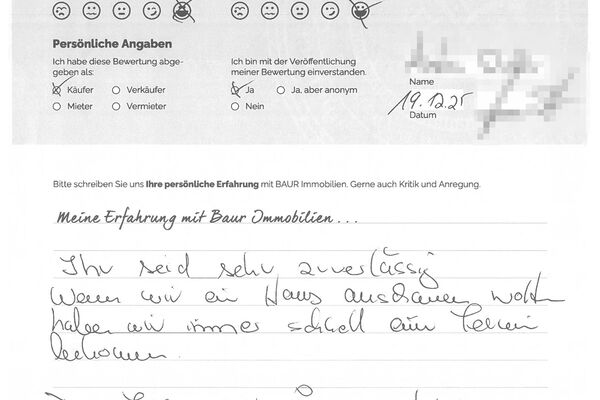 Persönliche Angaben
Ich habe diese Bewertung abge-
geben als:
Käufer Verkäufer
Mieter Vermieter
Ich bin mit der Veröffentlichung
meiner Bewertung einverstanden.
Ja Ja, aber anonym
Nein
Name
19.12.25
Datum
Bitte schreiben Sie uns Ihre persönliche Erfahrung mit BAUR Immobilien. Gerne auch Kritik und Anregung.
Meine Erfahrung mit Baur Immobilien...
Ihr seid sehr zuverlässig
Wenn wir ein Haus anschauen wollten
haben wir immer schnell ein Termin
bekommen.